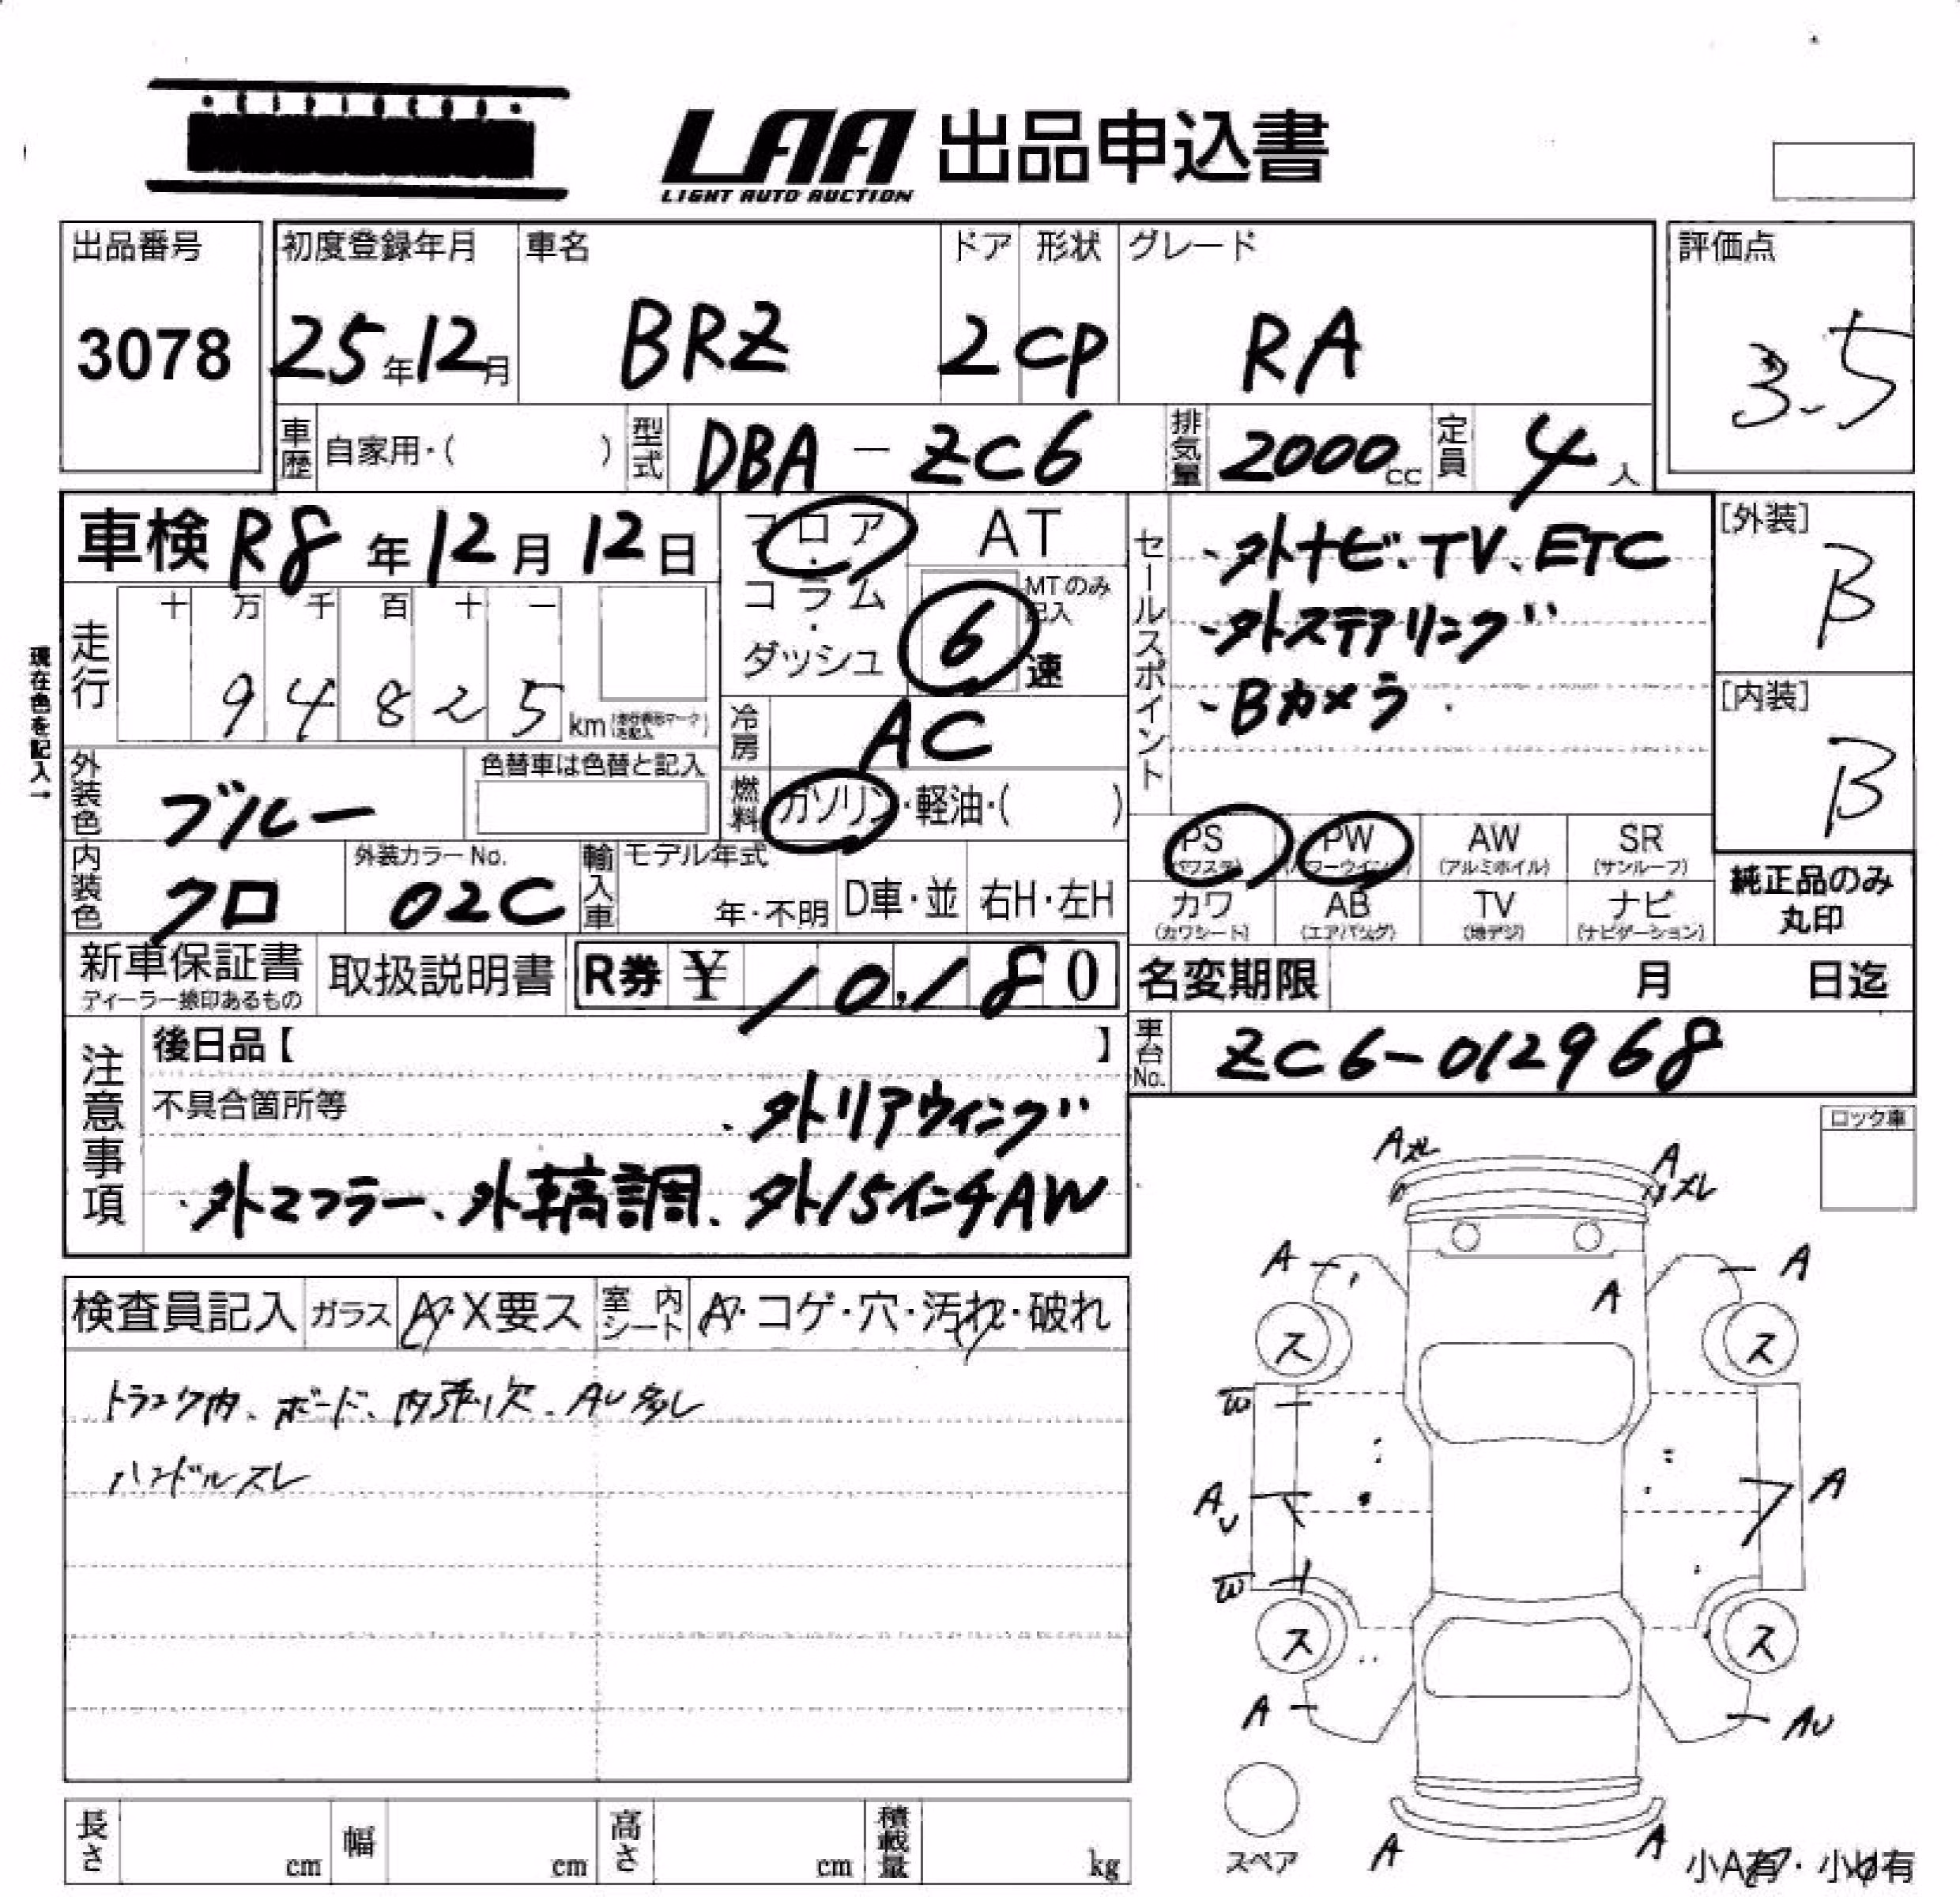 LAA 出品申込書
LIGHT AUTO AUCTION
出品番号
3078
初度登録年月
25年12月
車名
BRZ
ドア
2
形状
CP
グレード
RA
評価点
3.5
車歴 自家用・( )
型式 DBA-ZC6
排気量 2000cc
定員 4人
車検 R8年12月12日
フロア・コラム・ダッシュ
AT
MTのみ記入
6速
セールスポイント
・外ナビ、TV、ETC
・外ステアリング
・Bカメラ
[外装]
B
[内装]
B
現在色を記入→
走行
十 万 千 百 十 一
9 4 8 2 5 km
冷房 AC
外装色 ブルー
色替車は色替と記入
燃料 ガソリン・軽油・( )
PS (パワステ)
PW (パワーウインド)
AW (アルミホイル)
SR (サンルーフ)
カワ (カワシート)
AB (エアバッグ)
TV (地デジ)
ナビ (ナビゲーション)
純正品のみ
丸印
内装色 クロ
外装カラーNo.
02C
輸入車
モデル年式
年・不明
D車・並
右H・左H
新車保証書
ディーラー捺印あるもの
取扱説明書
R券 ¥ 10,180
名変期限 月 日迄
車台No. ZC6-012968
注意事項
後日品【 】
不具合箇所等
・外リアウィング
・外マフラー、外車高調、外15インチAW
ロック車
検査員記入
ガラス A・X要ス
室内シート A・コゲ・穴・汚れ・破れ
トランク内、ボード、内張り欠、AU多し
ハンドルスレ
Aスレ
A
スレ
A
A
A
ス
ス
W
AU
A
W
ス
ス
A
AU
A
A
スペア
小A有・小U有
長さ cm
幅 cm
高さ cm
積載量 kg